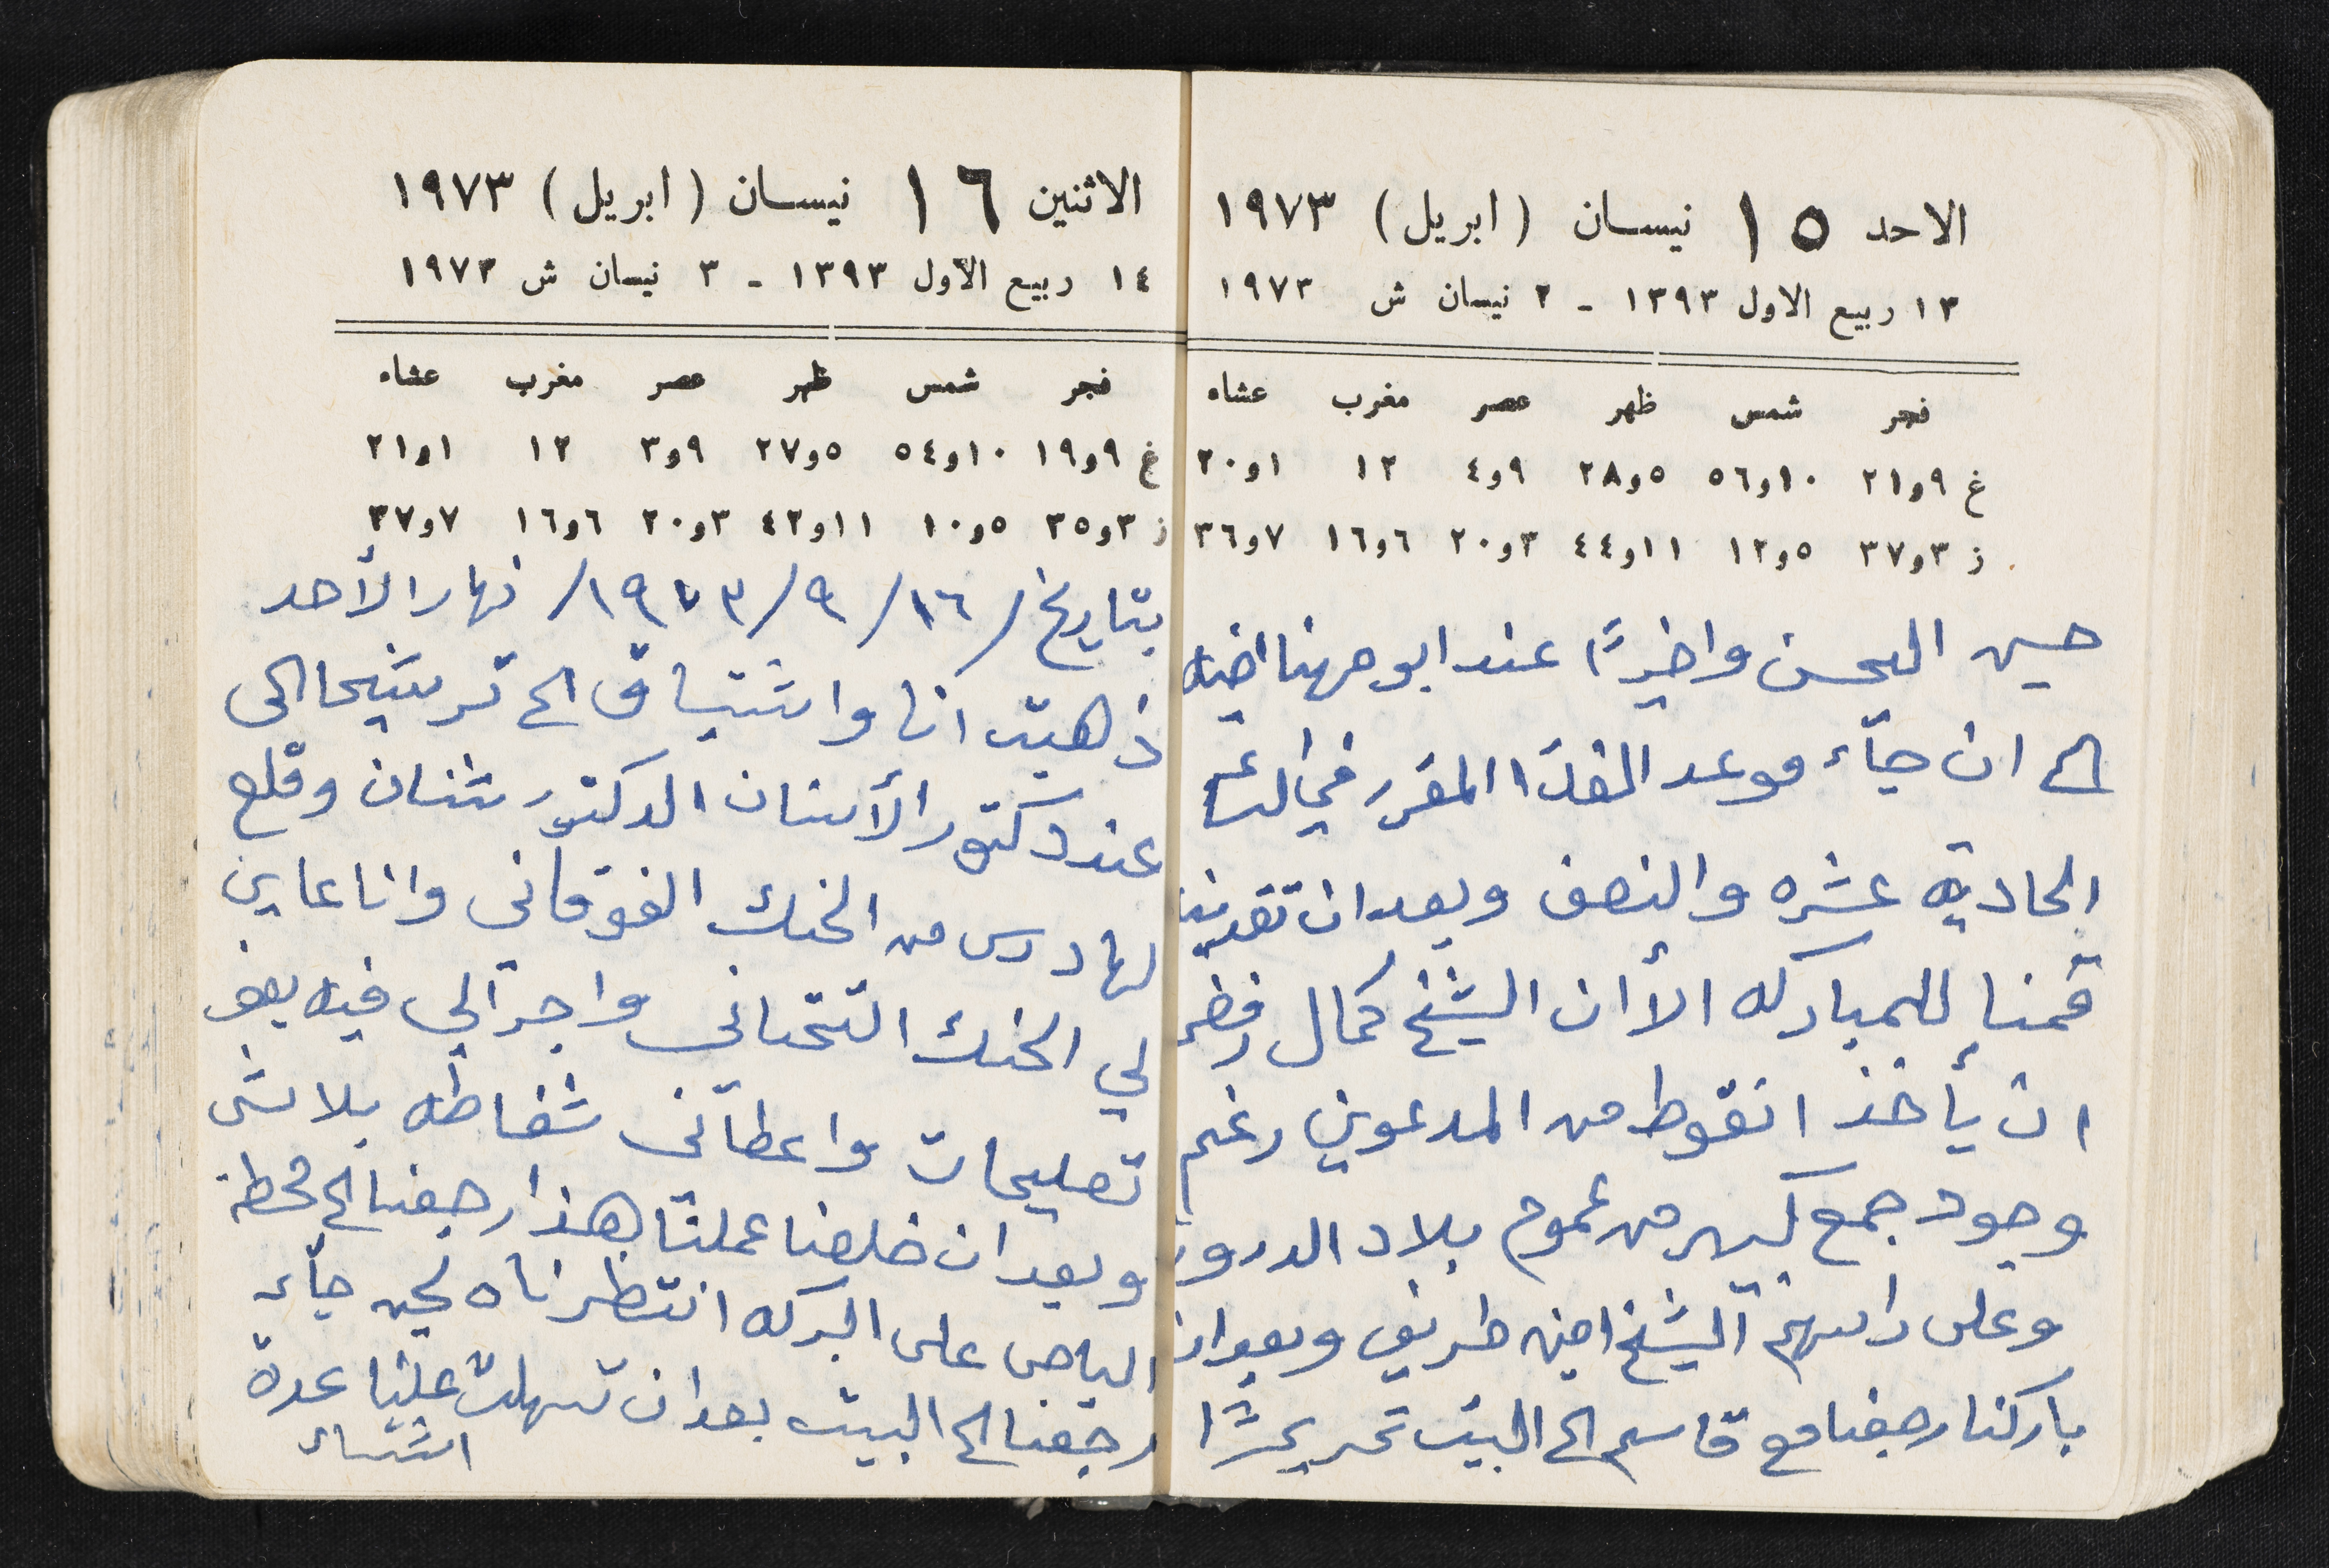 الاحد ١٥ نيسان (ابريل) ١٩٧٣
١٣ ربيع الاول ١٣٩٣ - ٢ نيسان ش ١٩٧٣
فجر شمس ظهر عصر مغرب عشاء
غ ٩و٢١ ١٠و٥٦ ٥و٢٨ ٩و٤ ١٢ ١و٢٠
ز ٣و٣٧ ٥و١٢ ١١و٤٤ ٣و٢٠ ٦و١٦ ٧و٣٦
حسين واخيرًا عند ابو مهنا
الى ان جآء موعد الغدآ المقرر في
الحاديه عشره والنصف وبعد ان تغدينا
قمنا للمباركه الأ ان الشيخ كمال رفض
ان يأخذ انقوط من المدعوين رغم
وجود جمع كبير من عموم بلاد الدروز
وعلى راسهم الشيخ امين طريف وبعد ان
باركنا رجعنا مع قاسم الى البيت تحريرًا
الاثنين ١٦ نيسان (ابريل) ١٩٧٣
١٤ ربيع الاول ١٣٩٣ - ٣ نيسان ش ١٩٧٣
فجر شمس ظهر عصر مغرب عشاء
غ ٩و١٩ ١٠و٥٤ ٥و٢٧ ٩و٣ ١٢ ١و٢١
ز ٣و٣٥ ٥و١٠ ١١و٤٣ ٣و٢٠ ٦و١٦ ٧و٣٧
بتاريخ /١٦/ ٩/ ١٩٧٣/ نهار الأحد
ذهبت انا واشتياق الى ترشيحا الى
عند دكتور الأسنان الدكتور شنان وقلع
لها درس من الحنك الفوقاني وانا عاين
لي الحنك التحتاني واجرآلي فيه بعض
تصليحات واعطاني شفاطه بلاش
وبعد ان خلصنا عملنا هذا رجعنا الى محطة
الباص على البركه انتظرناه لحين جآء
رجعنا الى البيت بعد ان تسهلت علينا عدة
اشياء